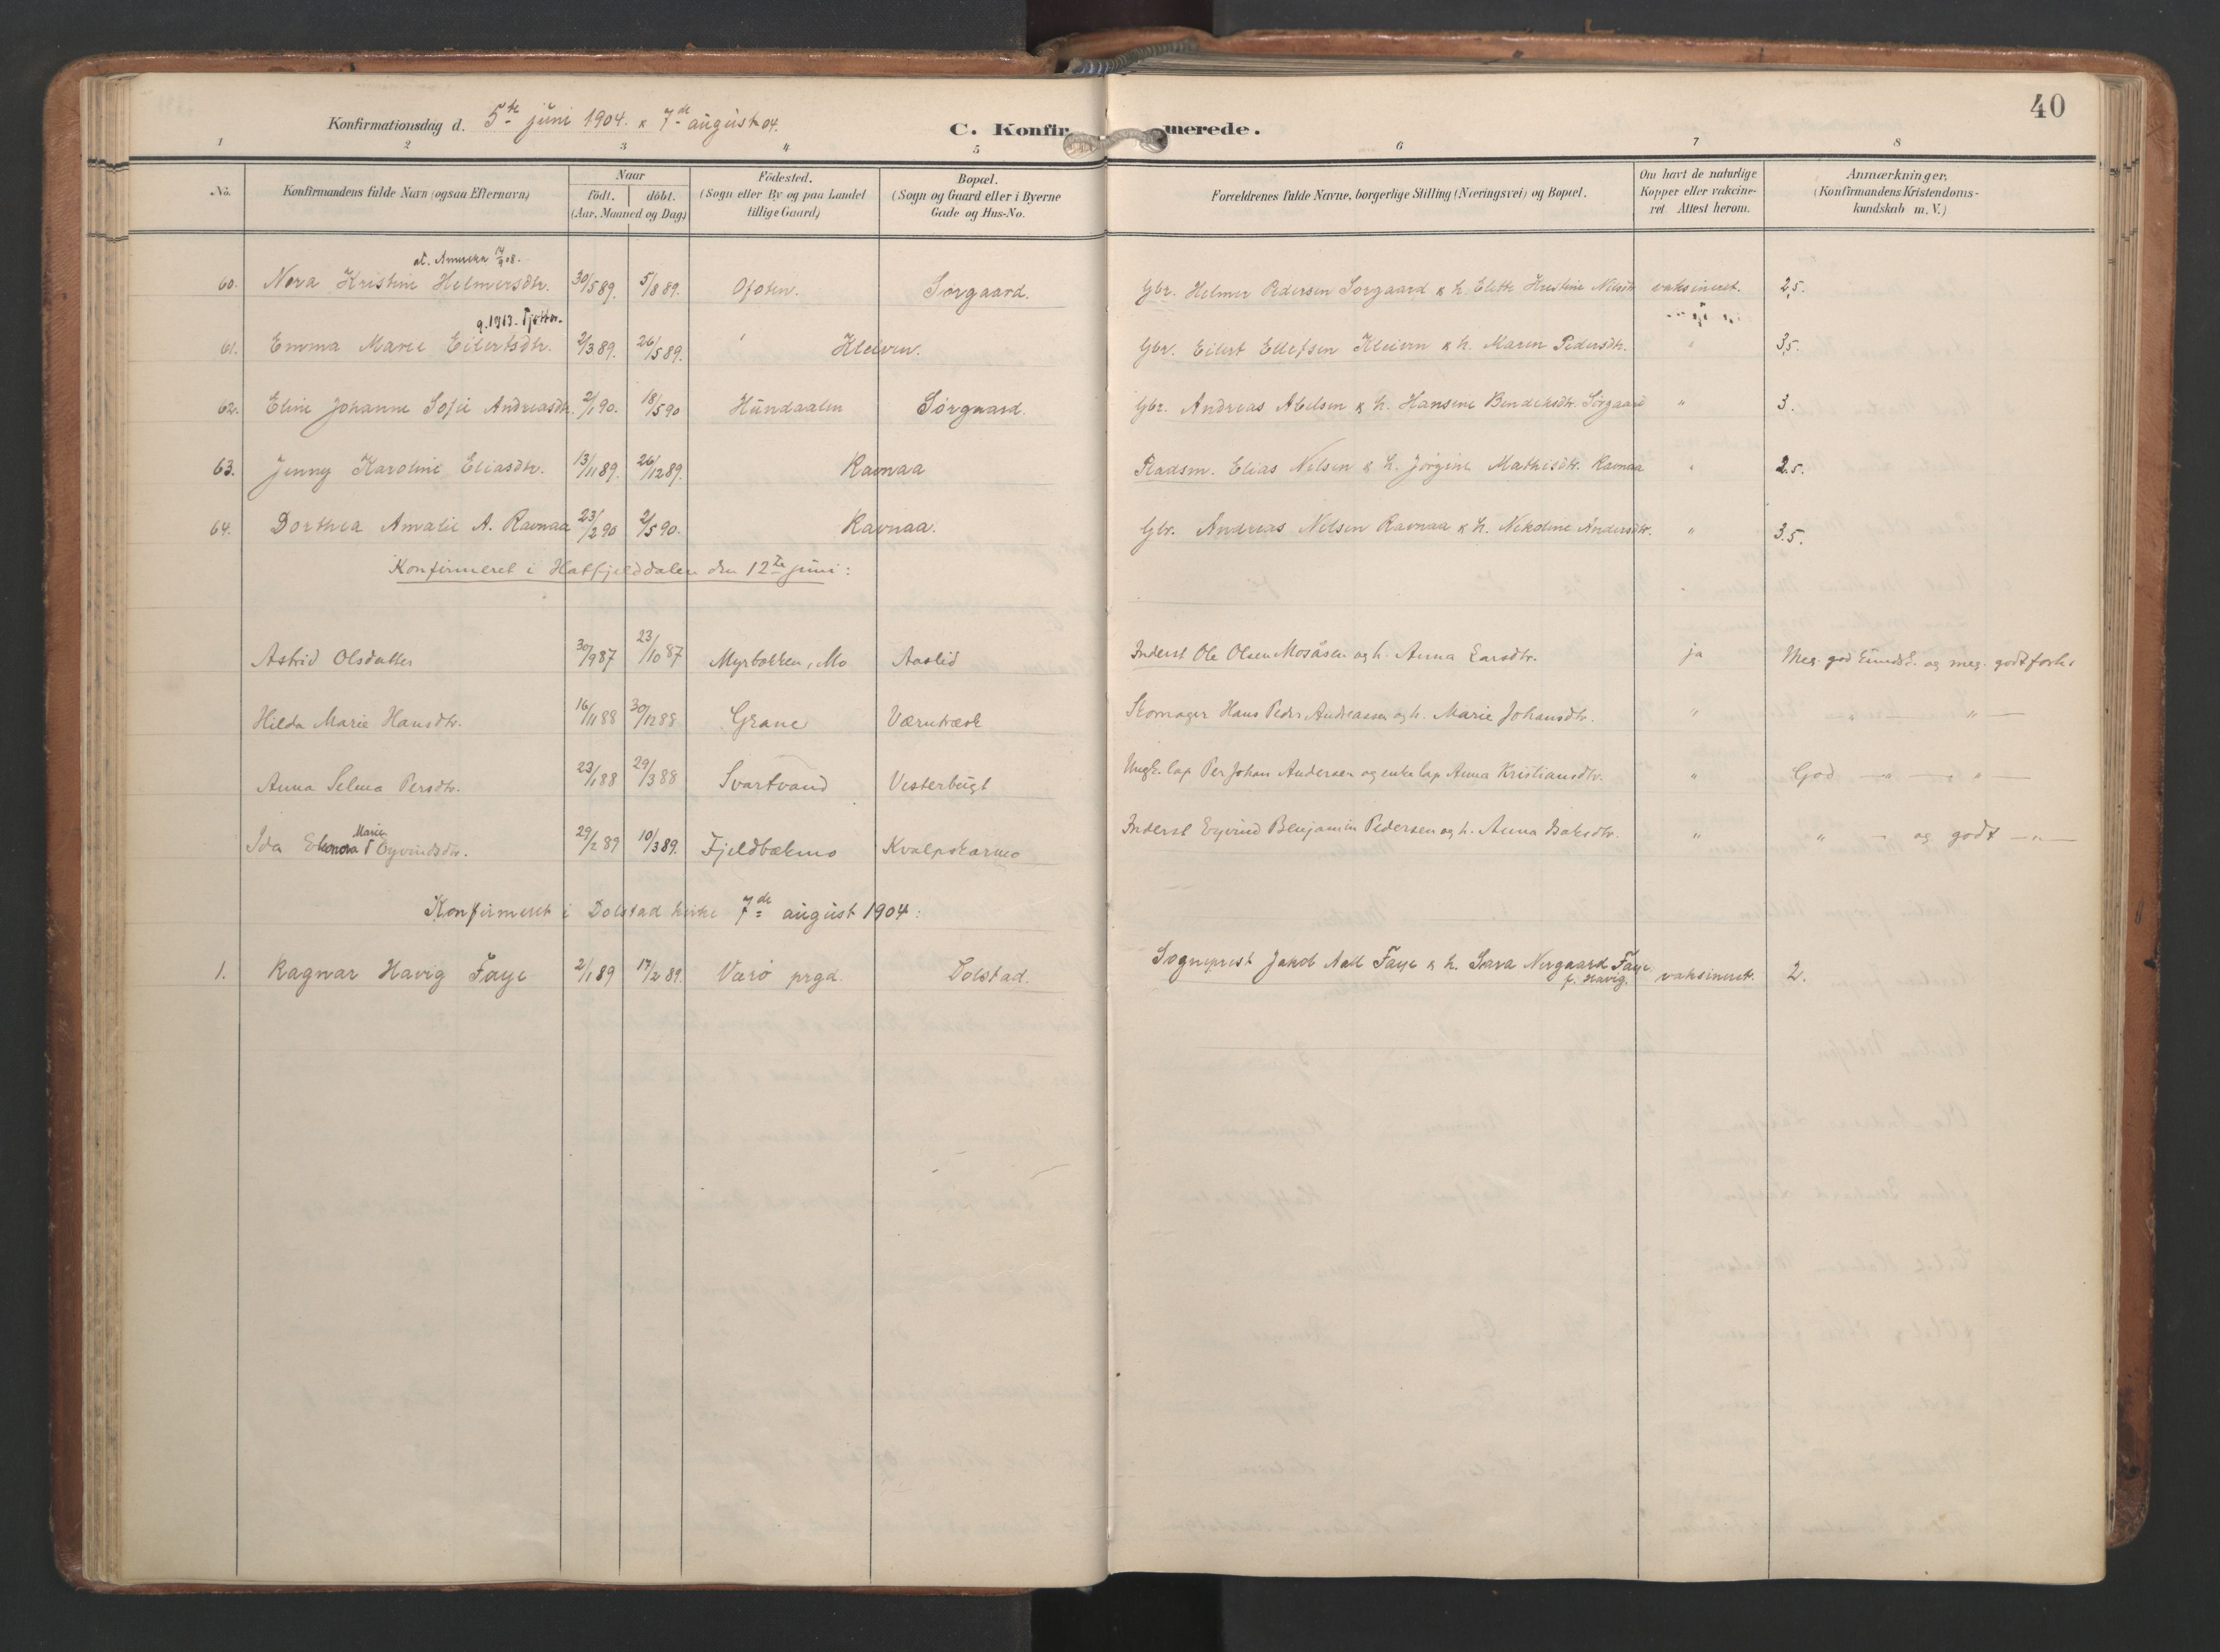 40
Konfirmationsdag d. 5te juni 1904. & 7de august 04.
C. Konfirmerede.
1 2 3 4 5 6 7 8
No. Konfirmandens fulde Navn (ogsaa Efternavn) Naar födt. döbt. (Aar, Maaned og Dag) Födested. (Sogn eller By og paa Landet tillige Gaard) Bopæl. (Sogn og Gaard eller i Byerne Gade og Hus-No. Forældrenes fulde Navne, borgerlige Stilling (Næringsvei) og Bopæl. Om havt de naturlige Kopper eller vakcineret. Attest herom. Anmærkninger. (Konfirmandens Kristendomskundskab m. V.)
at. Amerika 14/9 08.
60. Nora Kristine Helmersdtr. 30/5 89. 5/8 89. Ofoten. Sörgaard. Gbr. Helmer Pedersen Sörgaard & h. Elette Kristine Nilsdtr vaksineret. 2,5.
g. 1913. Tjötta.
61. Emma Marie Eilertsdtr. 2/3 89. 26/5 89. " Kleiven. Gbr. Eilert Ellefsen Kleiven & h. Maren Pedersdtr. " 3,5.
62. Eline Johanne Sofie Andreasdtr. 2/1 90. 18/5 90 Hundaalen Sörgaard. Gbr. Andreas Abelsen & h. Hansine Bendiksdtr. Sörgaard " 3.
63. Jenny Karoline Eliasdtr. 13/11 89. 26/12 89. Ravnaa Pladsm. Elias Nilsen & h. Jörgine Mathisdtr. Ravnaa " 2.5.
64. Dorthea Amalie A. Ravnaa 23/2 90 2/5 90. Ravnaa. Gbr. Andreas Nilsen Ravnaa & h. Nikoline Andersdtr. " 3.5.
Konfirmeret i Hatfjelddalen den 12te juni:
Astrid Olsdatter 30/9 87 23/10 87 Myrbækken, Mo Aaslid Inderst Ole Olsen Mosåsen og h. Anna Larsdtr. ja Meg. god kundsk. og meg. godt forh.
Hilda Marie Hansdtr. 16/11 88 30/12 88 Grane Skomager Hans Peder Andreassen og h. Marie Johansdtr. " — " — " —
Anna Selma Persdtr. 23/1 88 29/3 88 Svartvand Vesterbugt Ungk. lap Per Johan Andersen og enke lap Anna Kristiansdtr. " God — " — " —
Marie
Ida Eleonora Eyvindsdtr. 29/2 89 10/3 89. Fjeldbækmo Kvalpskarmo Inderst Eyvind Benjamin Pedersen og h. Anna Isaksdtr. " " — og godt — " —
Konfirmeret i Dolstad kirke 7de august 1904:
1. Ragnar Havig Faye 2/1 89 17/2 89. Værö prgd. Dolstad. Sogneprest Jakob Aall Faye & h. Sara Nergaard Faye f. Havig. vaksineret. 2.